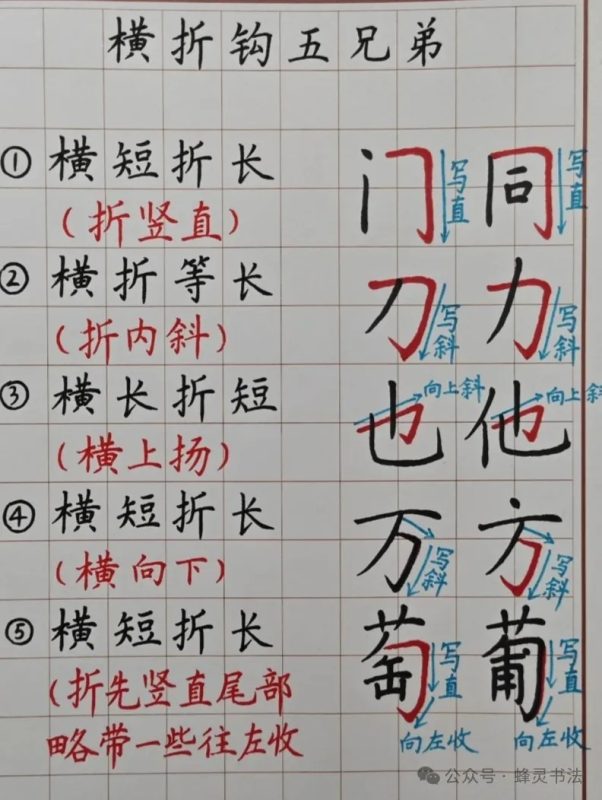 横折钩五兄弟
①横短折长 门 写直 同 写直
(折竖直)
②横折等长 刀 写斜 力 写斜
(折内斜)
③横长折短 也 向上斜 他 向上斜
(横上扬)
④横短折长 万 写斜 方 写斜
(横向下)
⑤横短折长 萄 写直 向左收 葡 写直 向左收
(折先竖直尾部
略带一些往左收
公众号·蜂灵书法